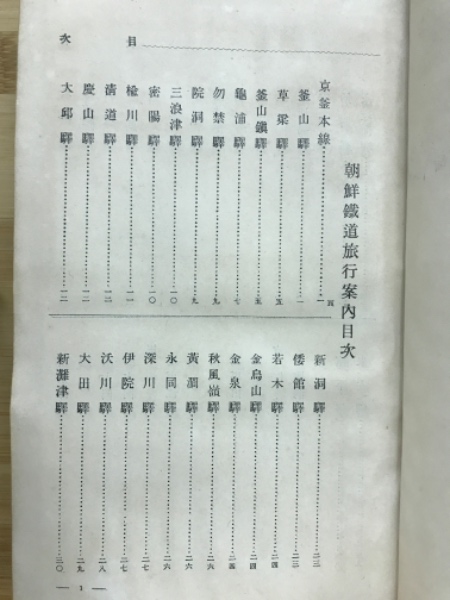 目次
朝鮮鐵道旅行案內目次
京釜本線……一
釜山驛……一
草梁驛……五
釜山鎭驛……五
龜浦驛……七
勿禁驛……九
院洞驛……九
三浪津驛……一〇
密陽驛……一〇
楡川驛……一一
淸道驛……一二
慶山驛……一二
大邱驛……一二
新洞驛……二三
倭館驛……二三
若木驛……二四
金烏山驛……二四
金泉驛……二五
秋風嶺驛……二六
黃澗驛……二六
永同驛……二六
深川驛……二七
伊院驛……二七
沃川驛……二八
大田驛……二九
新灘津驛……三〇
— 1 —